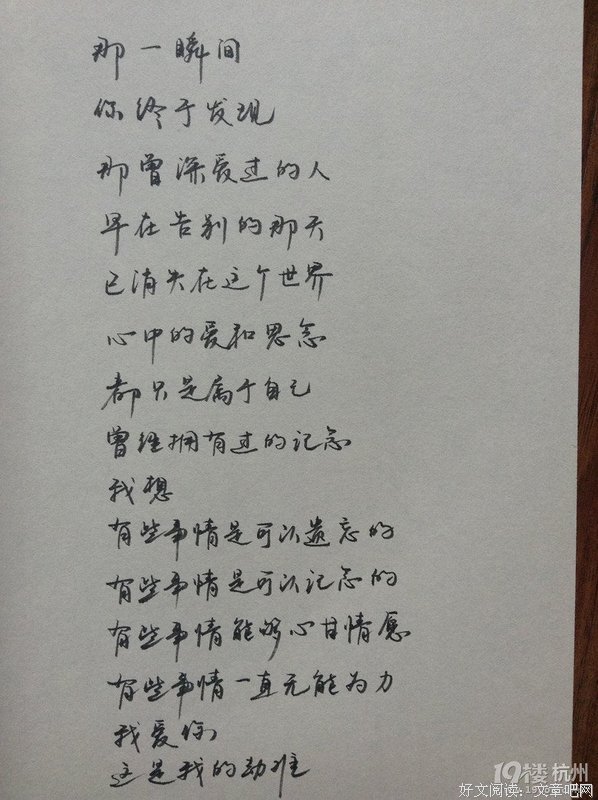 那一瞬间
你终于发现
那曾深爱过的人
早在告别的那天
已消失在这个世界
心中的爱和思念
都只是属于自己
曾经拥有过的记忆
我想
有些事情是可以遗忘的
有些事情是可以记念的
有些事情能够心甘情愿
有些事情一直无能为力
我爱你
这是我的劫难
19楼 杭州
好文阅读：文章吧网